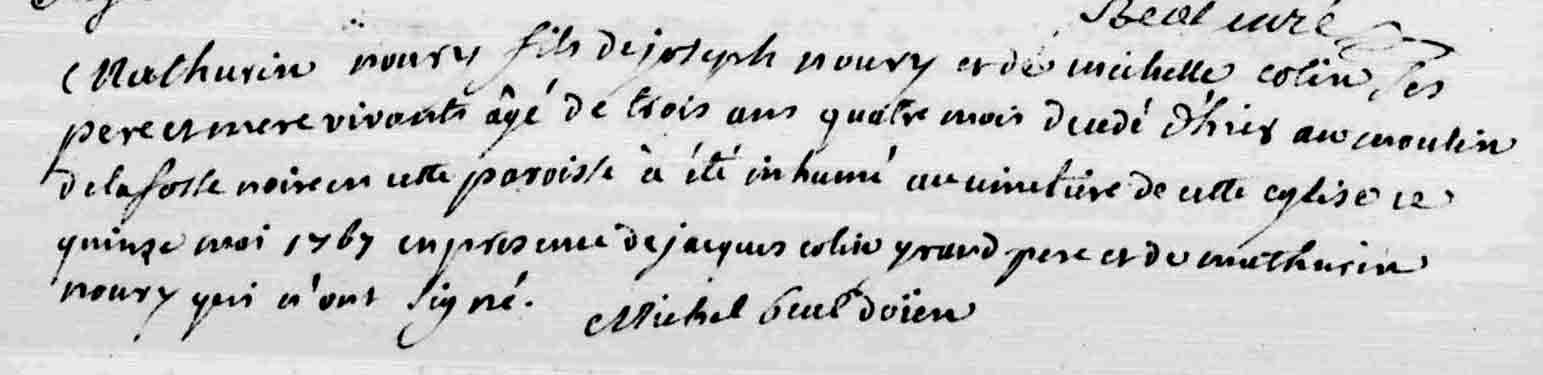 curé
Mathurin noury fils de joseph noury et de michelle colin, ses
pere et mere vivants âgé de trois ans quatre mois decedé d'hier au moulin
de la fosse noire en cette paroisse à été inhumé au cimetiére de cette eglise ce
quinze mai 1767 en presence de jacques colin grand pere et de mathurin
noury qui n'ont signé.
Michel doïen